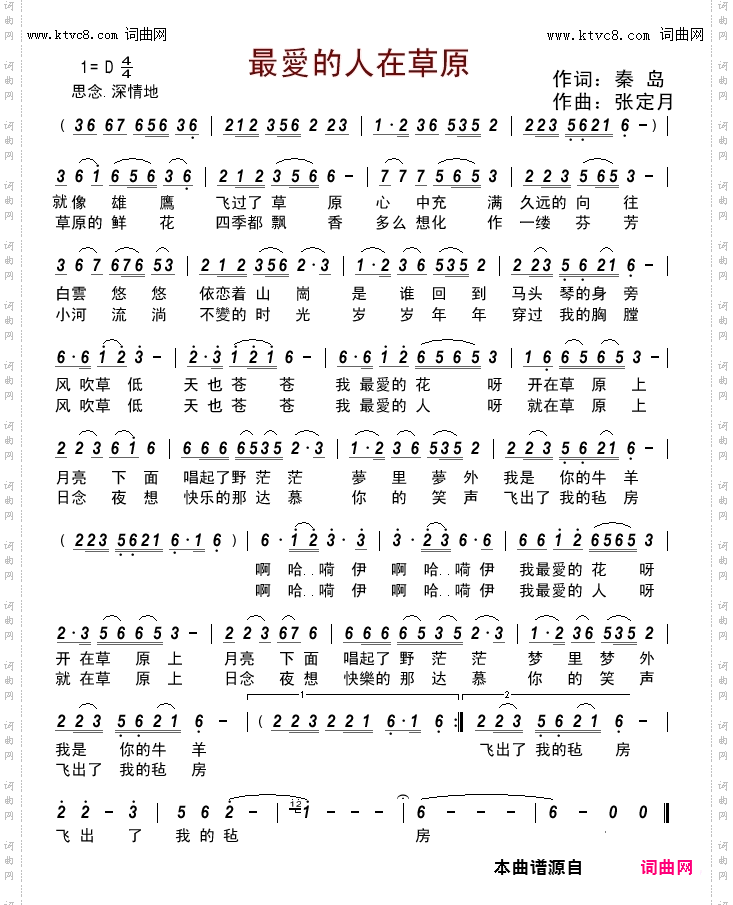 www.ktvc8.com 词曲网
www.ktvc8.com 词曲网
最愛的人在草原
1=D 4/4
思念.深情地
作词：秦 岛
作曲：张定月
( 36 67 656 36 | 212 356 2 23 | 1·2 36 535 2 | 223 5621 6 - ) |
3 6 1 656 36 | 212 356 6 - | 77 7 565 3 | 2 23 565 3 - |
就像 雄 鹰 飞过了 草 原 心 中充 满 久远的 向 往
草原的 鲜 花 四季都 飘 香 多么 想化 作 一缕 芬 芳
3 6 7 676 53 | 2 1 2 356 2·3 | 1·2 3 6 535 2 | 2 23 5 621 6 - |
白雲 悠 悠 依恋着 山 崗 是 谁 回 到 马头 琴的身 旁
小河 流 淌 不變的 时 光 岁 岁 年 年 穿过 我的胸 膛
6·6 1 2 3 - | 2·3 1 2 1 6 - | 6·6 1 2 6565 3 | 1 6 565 65 3 |
风 吹草 低 天 也 苍 苍 我 最愛的 花 呀 开在草 原 上
风 吹草 低 天 也 苍 苍 我 最愛的 人 呀 就在草 原 上
2 2 3 6 1 6 | 6 6 6 6535 2·3 | 1·2 3 6 535 2 | 2 23 5 621 6 - |
月亮 下 面 唱起了野 茫 茫 夢 里 夢 外 我是 你的牛 羊
日念 夜 想 快乐的那 达 慕 你 的 笑 声 飞出了 我的毡 房
( 223 5621 6·1 6 ) | 6·1 2 3·3 | 3·2 3 6·6 | 6 6 1 2 6565 3 |
啊 哈..嗬 伊 啊 哈..嗬伊 我最愛的 花 呀
啊 哈..嗬 伊 啊 哈..嗬伊 我最愛的 人 呀
2·3 5 6 6 5 3 - | 2 2 3 67 6 | 6 6 6 6 5 3 5 2·3 | 1·2 3 6 535 2 |
开 在草 原 上 月亮 下 面 唱起了 野 茫 茫 梦 里 梦 外
就 在草 原 上 日念 夜 想 快樂的 那 达 慕 你 的 笑 声
1 2
2 2 3 5 6 2 1 6 - | ( 2 2 3 2 2 1 6·1 6 :‖ 2 2 3 5 6 2 1 6 - |
我是 你的牛 羊 飞出了 我的毡 房
飞出了 我的毡 房
2 2 - 3 | 5 6 2 - - | 12 1 - - - | 6 - - - | 6 - 0 0 ‖
飞 出 了 我 的 毡 房
本曲谱源自 词曲网